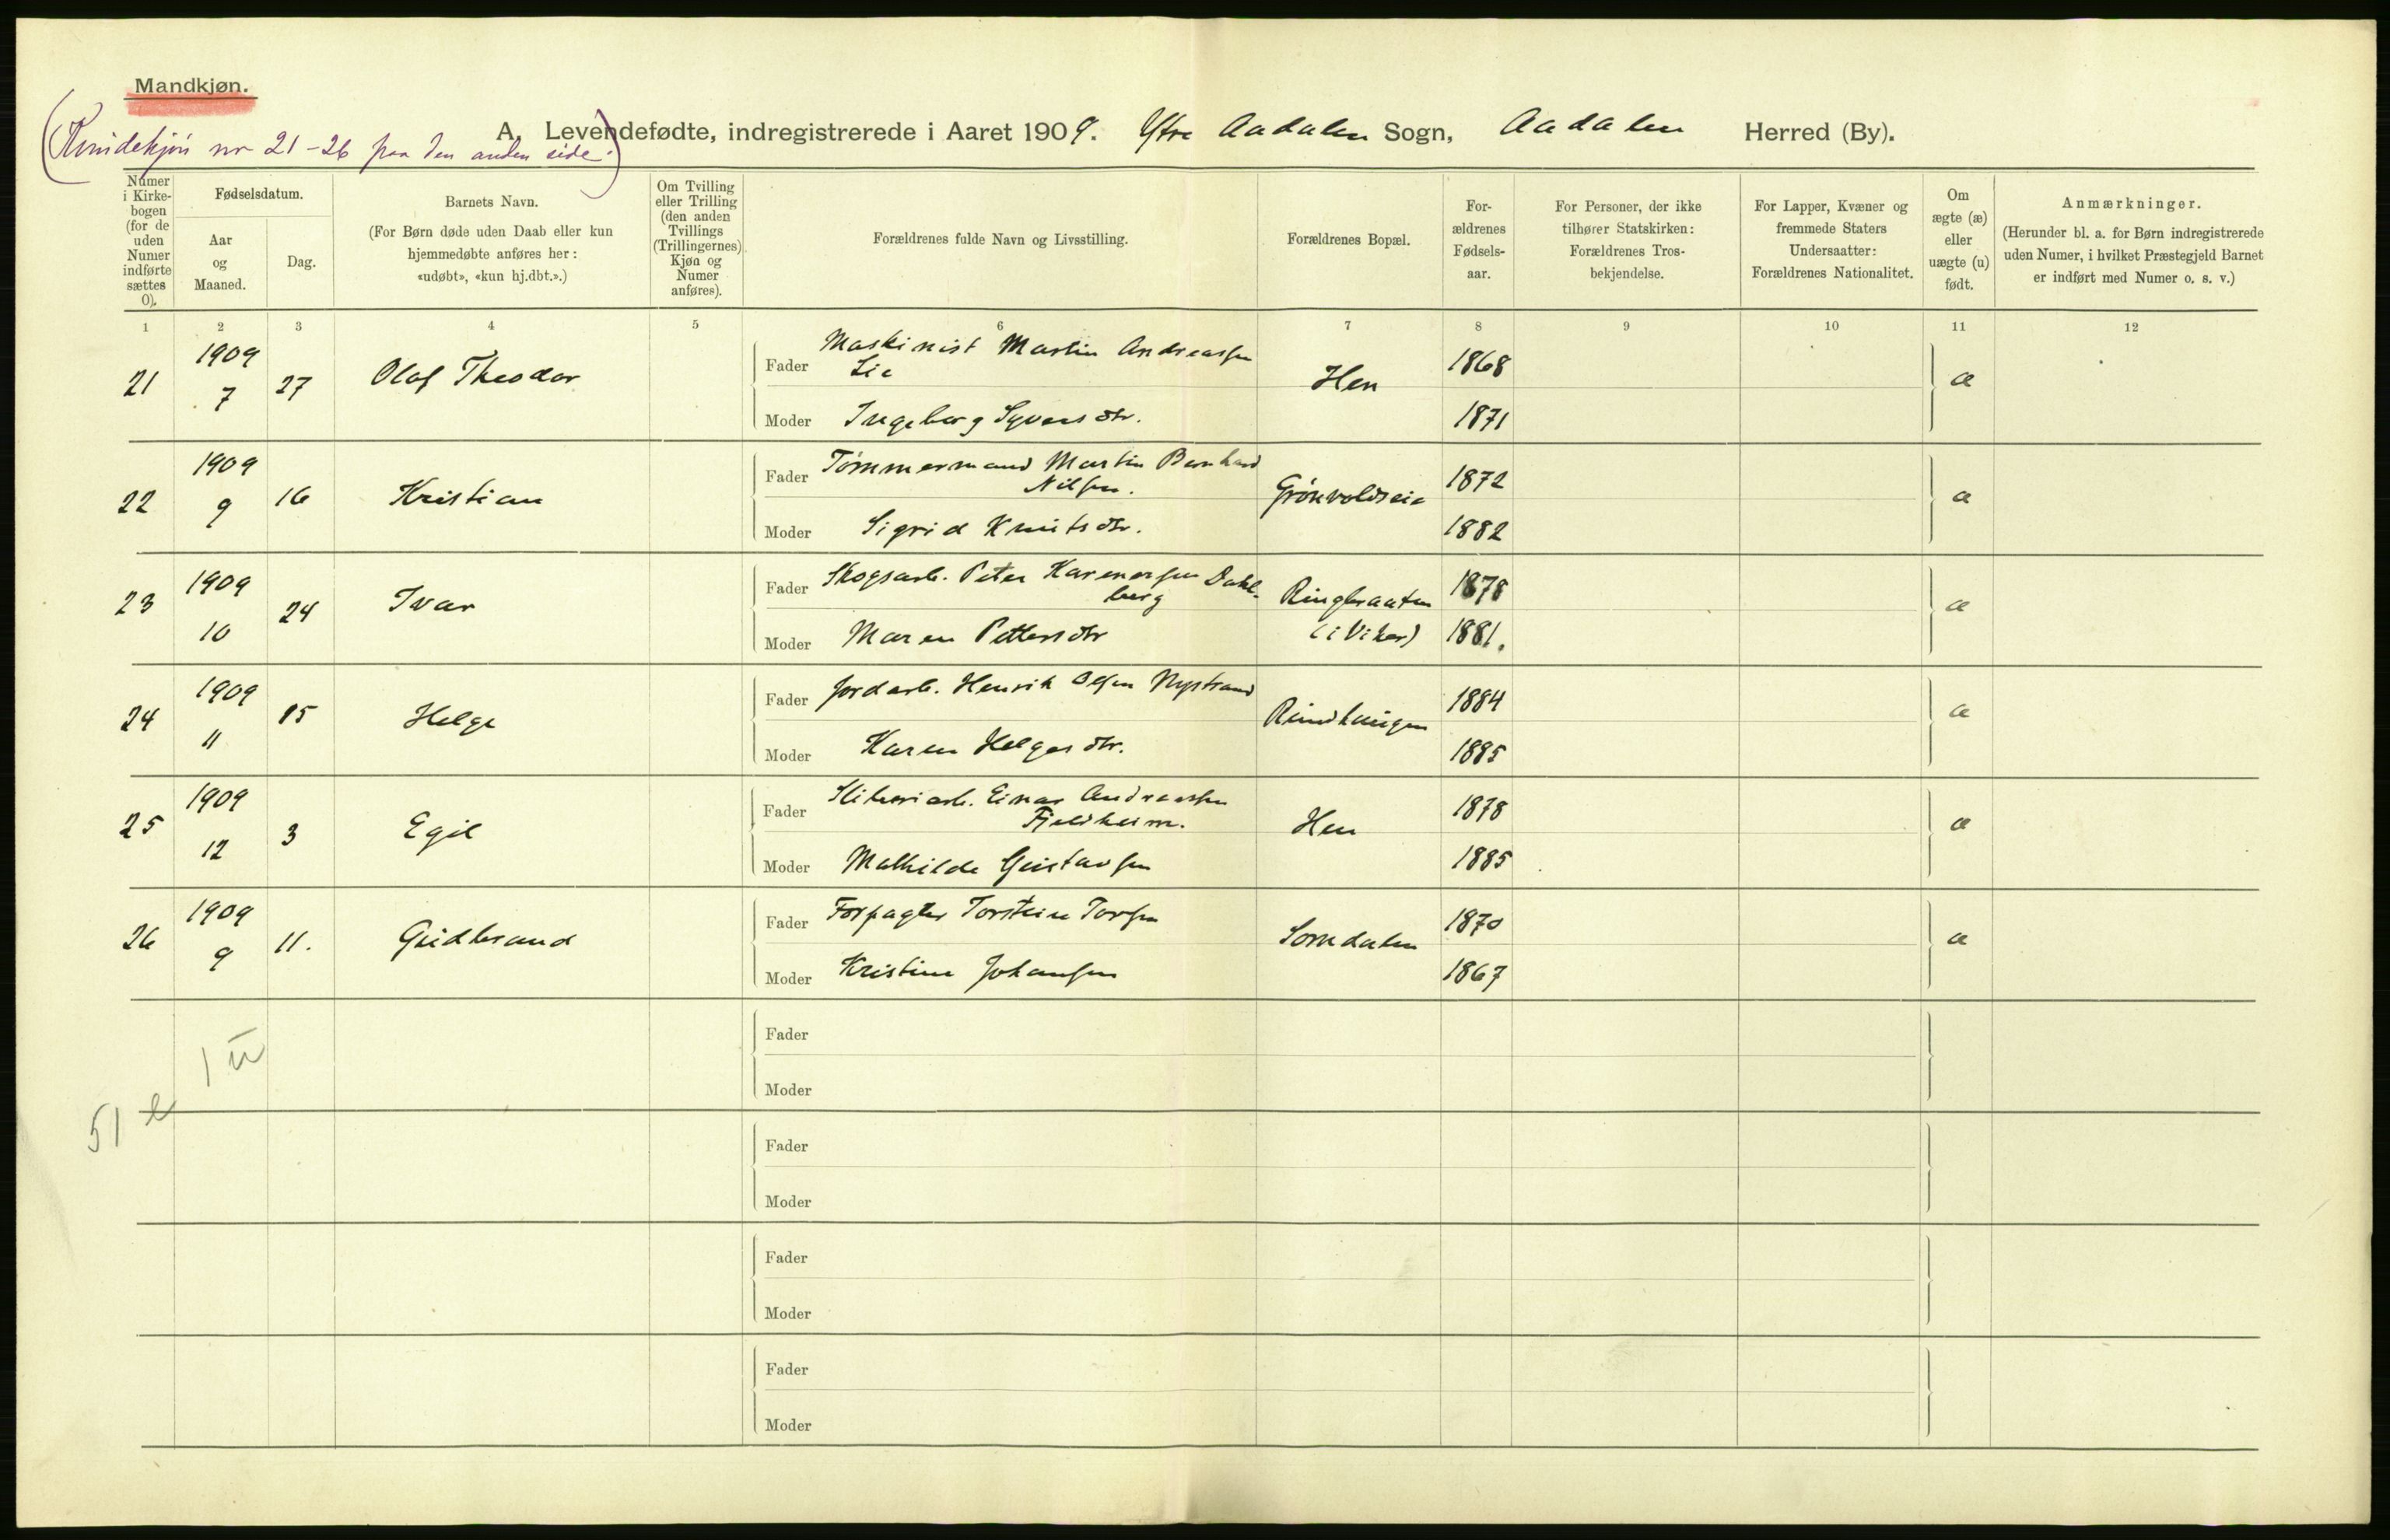 Mandkjøn.
(Kvindekjøn nr 21-26 paa den anden side.)
A. Levendefødte, indregistrerede i Aaret 1909. Ytre Aadalen Sogn, Aadalen Herred (By).
Numer i Kirkebogen (for de uden Numer indførte sættes 0).
Fødselsdatum.
Aar og Maaned.
Dag.
Barnets Navn.
(For Børn døde uden Daab eller kun hjemmedøbte anføres her: «udøbt», «kun hj.dbt.».)
Om Tvilling eller Trilling (den anden Tvillings (Trillingernes) Kjøn og Numer anføres).
Forældrenes fulde Navn og Livsstilling.
Forældrenes Bopæl.
Forældrenes Fødselsaar.
For Personer, der ikke tilhører Statskirken: Forældrenes Trosbekjendelse.
For Lapper, Kvæner og fremmede Staters Undersaatter: Forældrenes Nationalitet.
Om ægte (æ) eller uægte (u) født.
Anmærkninger.
(Herunder bl. a. for Børn indregistrerede uden Numer, i hvilket Præstegjeld Barnet er indført med Numer o. s. v.)
1 2 3 4 5 6 7 8 9 10 11 12
21 1909 7 27 Olaf Theodor
Fader Maskinist Martin Andreassen Lie Hen 1868 æ
Moder Ingeborg Syversdtr. 1871
22 1909 9 16 Kristian
Fader Tømmermand Martin Bernhard Nilsen. Grønvoldseie 1872 æ
Moder Sigrid Knutsdtr. 1882
23 1909 10 24 Ivar
Fader Skogsarb. Peter Karenersen Dahlberg Ringbraaten (i Viker) 1878 æ
Moder Maren Pettersdtr 1881.
24 1909 11 15 Helge
Fader Jordarb. Henrik Olsen Nystrand Rundhaugen 1884 æ
Moder Karen Helgesdtr. 1885
25 1909 12 3 Egil
Fader Sliberiarb. Einar Andreassen Fjeldheim. Hen 1878 æ
Moder Mathilde Gustavsen 1885
26 1909 9 11. Gudbrand
Fader Forpagter Torstein Torsen Somdalen 1870 æ
Moder Kristine Johansen 1867
Fader
1 u
Moder
51 e
Fader
Moder
Fader
Moder
Fader
Moder